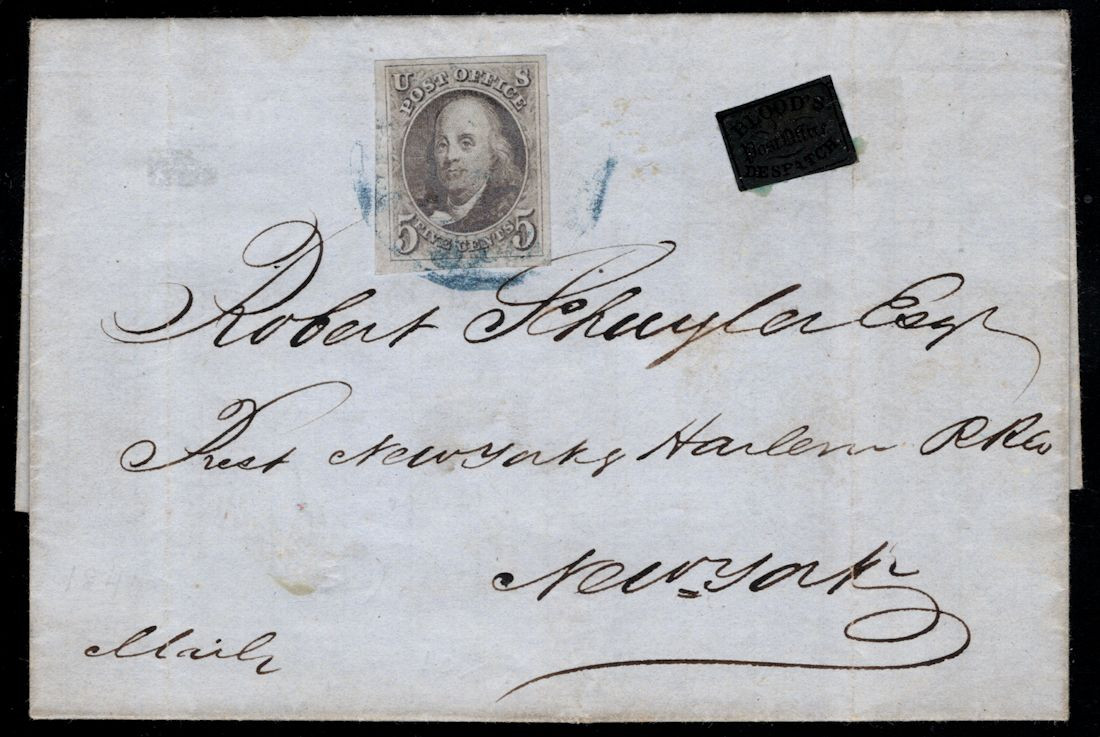 U S
POST OFFICE
5 FIVE CENTS 5
BLOOD'S
Post Office
DESPATCH
Robert Schuyler Esqr
Prest New York & Harlem R R Co
New York
Mail